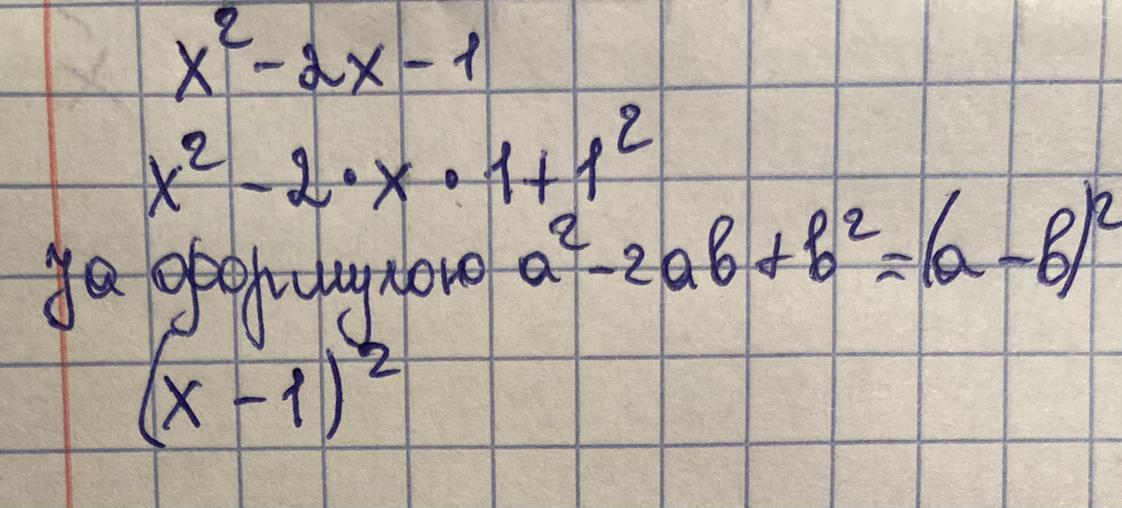 x² - 2x - 1
x² - 2 · x · 1 + 1²
за формулою a² - 2ab + b² = (a - b)²
(x - 1)²